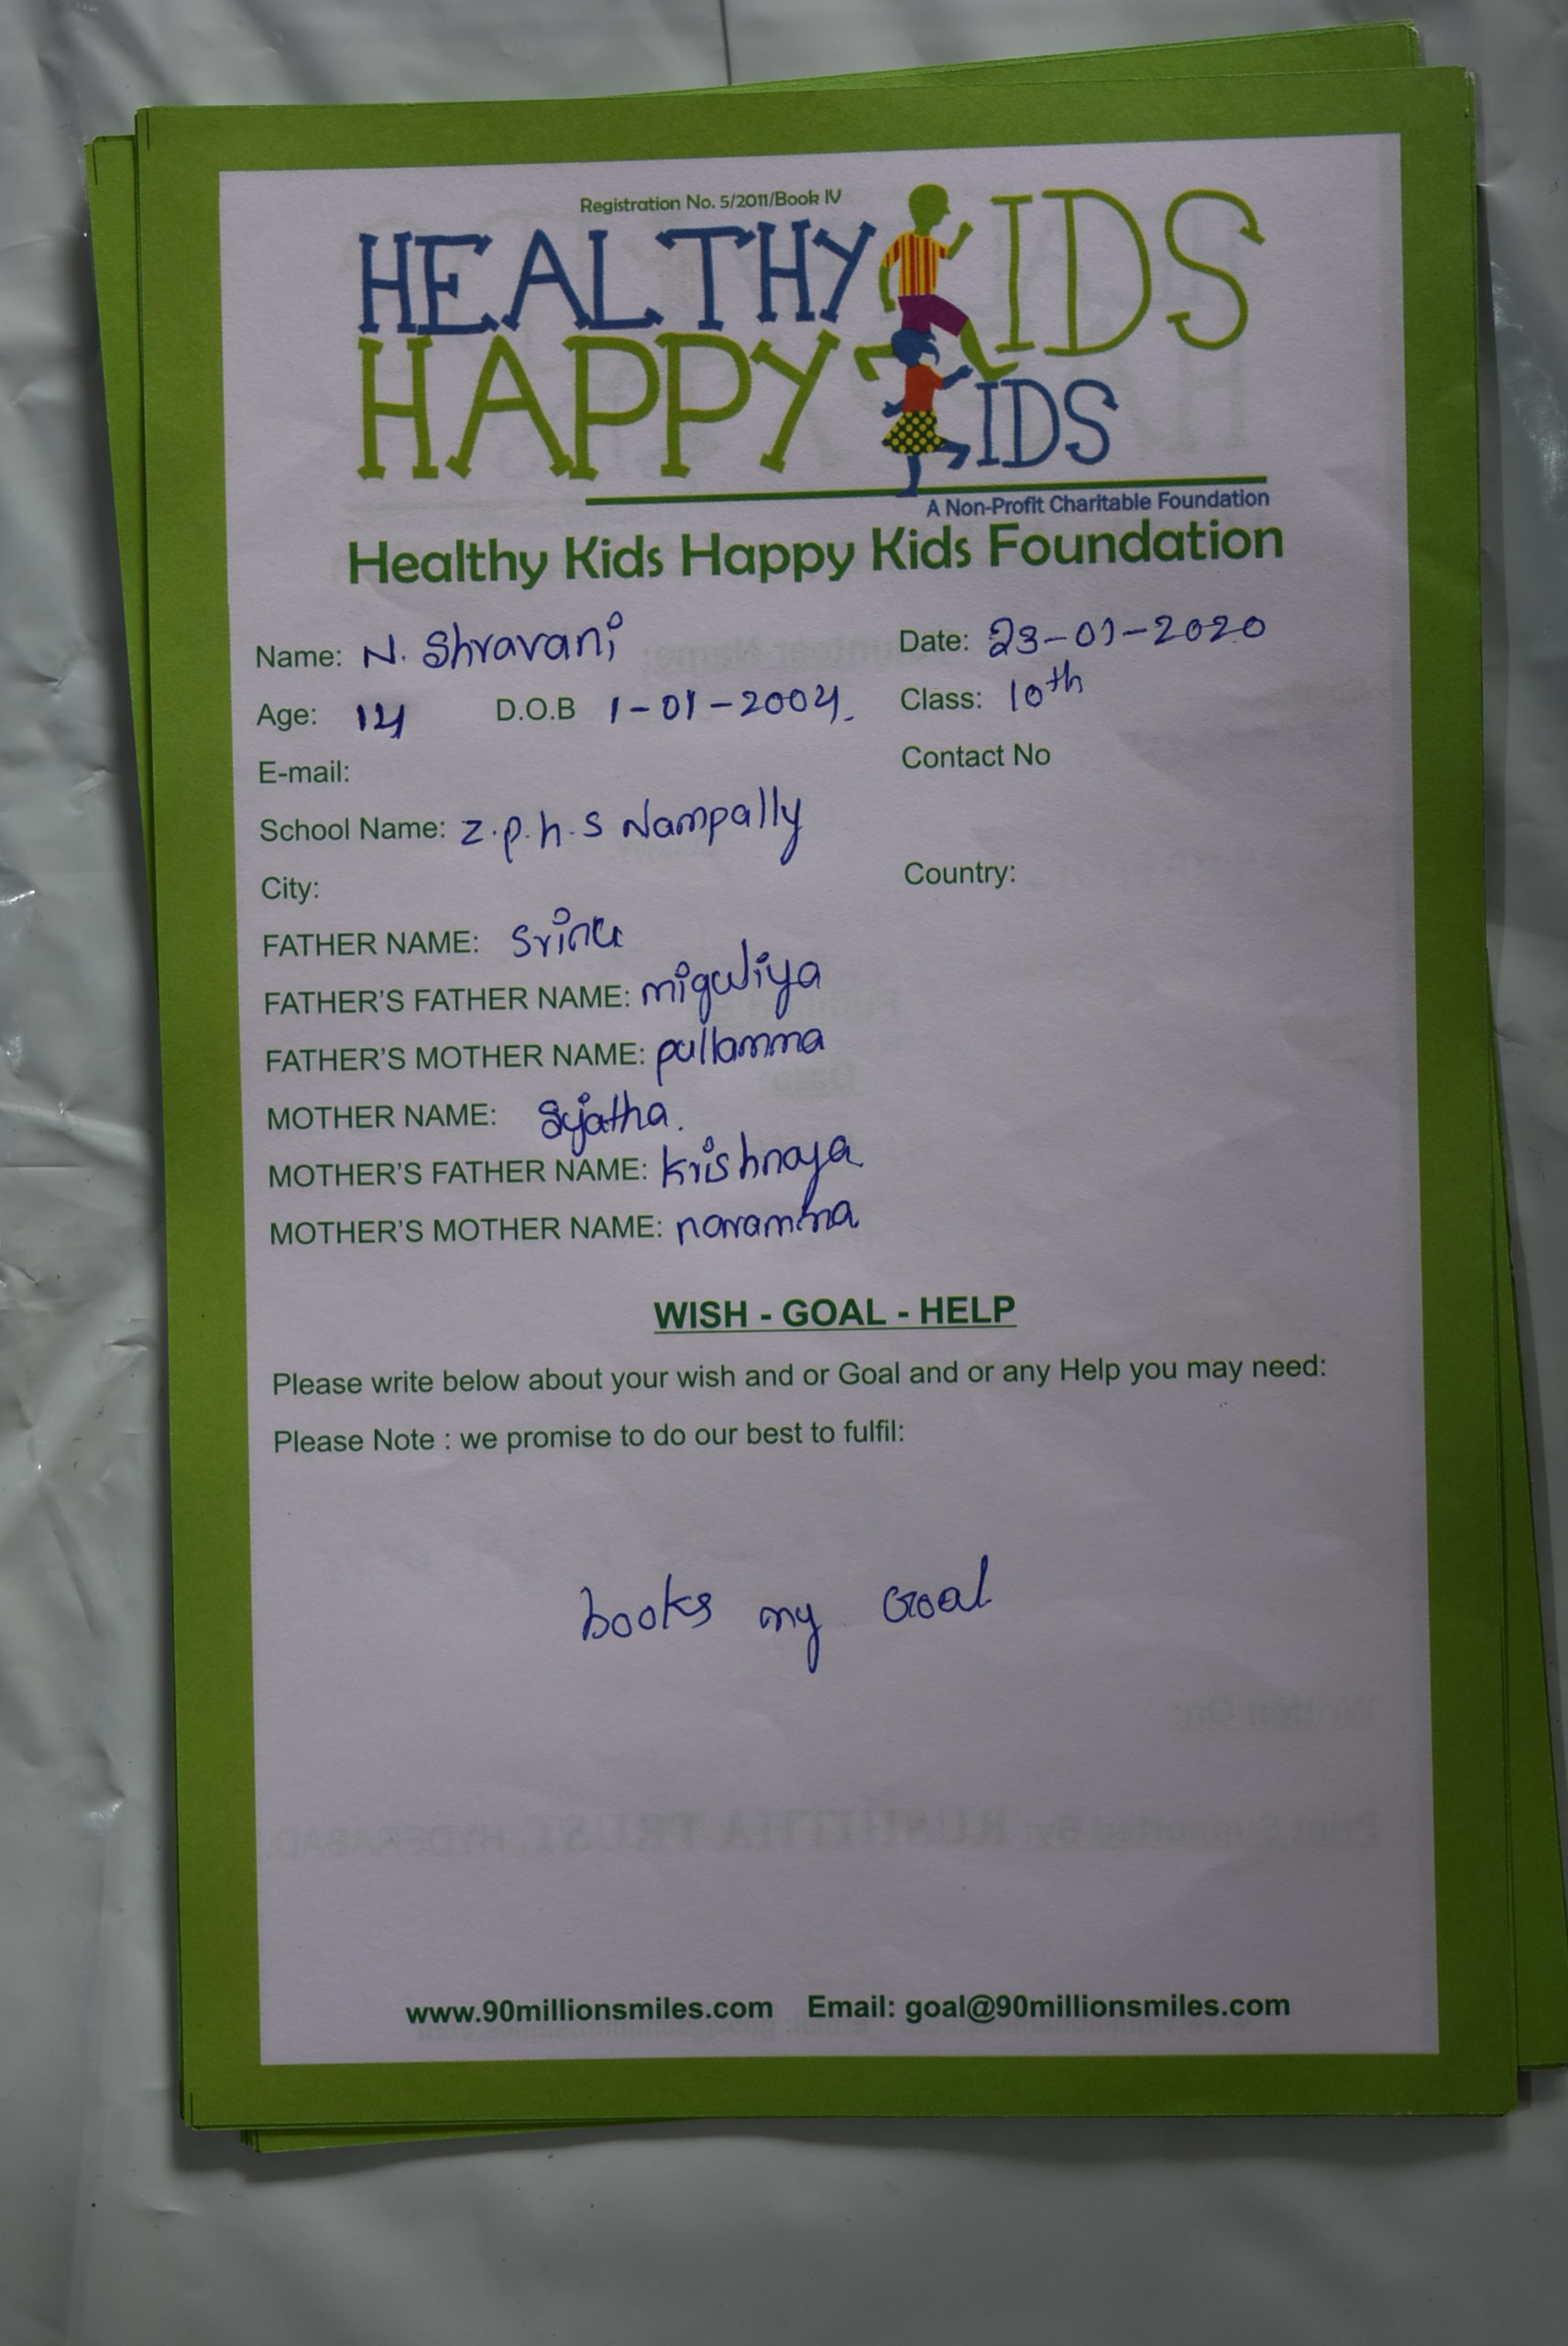 Registration No. 5/2011/Book IV
HEALTHY KIDS
HAPPY KIDS
A Non-Profit Charitable Foundation
Healthy Kids Happy Kids Foundation
Name: N. Shravani Date: 23-01-2020
Age: 14 D.O.B 1-01-2004. Class: 10th
E-mail: Contact No
School Name: Z.p.h.s Nampally
City: Country:
FATHER NAME: Srinu
FATHER'S FATHER NAME: miguliya
FATHER'S MOTHER NAME: pullamma
MOTHER NAME: Sujatha.
MOTHER'S FATHER NAME: krishnaya
MOTHER'S MOTHER NAME:
WISH - GOAL - HELP
Please write below about your wish and or Goal and or any Help you may need:
Please Note : we promise to do our best to fulfil:
books my Goal
www.90millionsmiles.com Email: goal@90millionsmiles.com